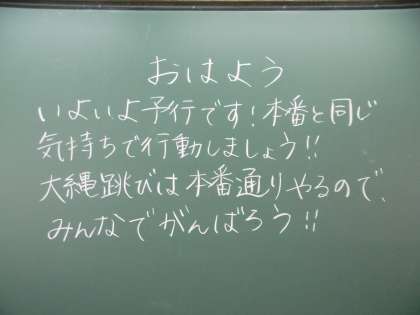 おはよう
いよいよ予行です!本番と同じ
気持ちで行動しましょう!!
大縄跳びは本番通りやるので、
みんなでがんばろう!!